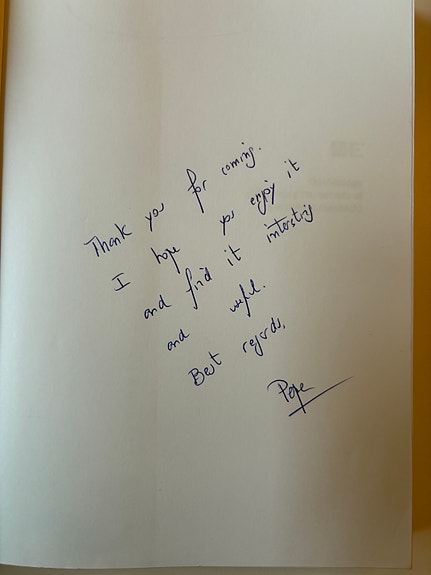 Thank you for coming.
I hope you enjoy it
and find it interesting
and useful.
Best regards,
Pepe